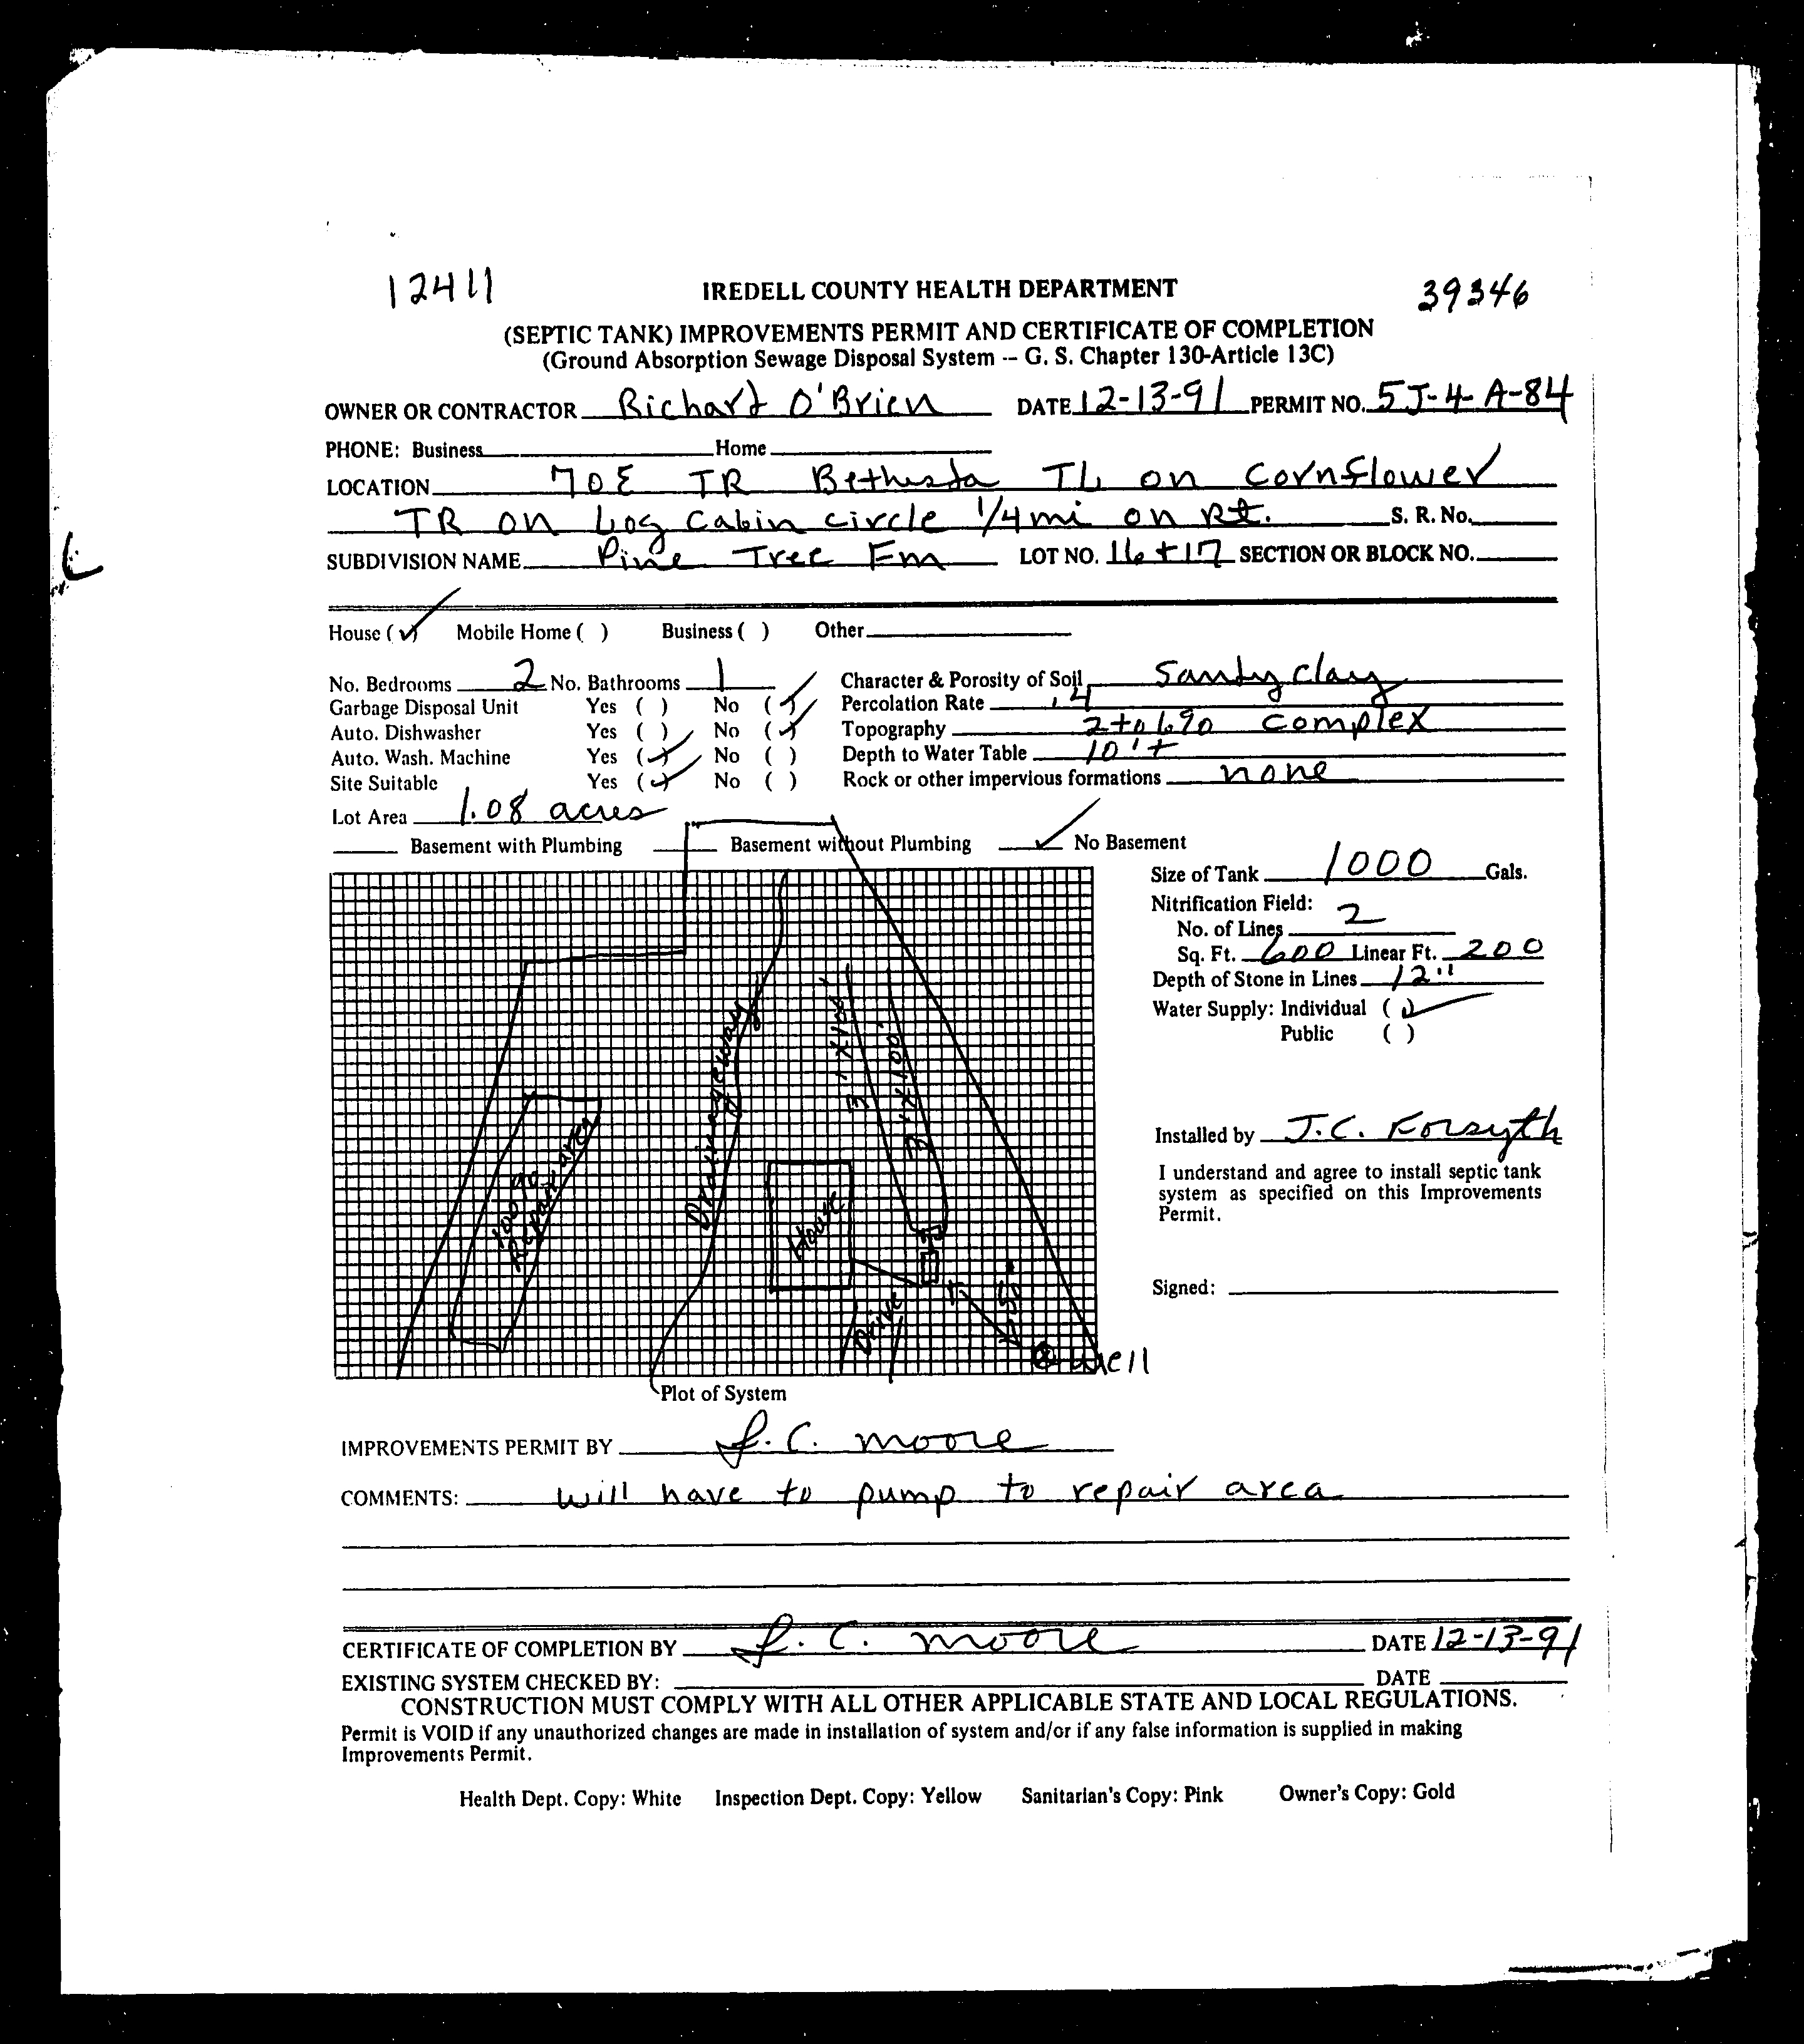 12411 IREDELL COUNTY HEALTH DEPARTMENT 39346
(SEPTIC TANK) IMPROVEMENTS PERMIT AND CERTIFICATE OF COMPLETION
(Ground Absorption Sewage Disposal System -- G. S. Chapter 130-Article 13C)
OWNER OR CONTRACTOR Richard O'Brien DATE 12-13-91 PERMIT NO. 5J-4-A-84
PHONE: Business Home
LOCATION 70E TR Bethesda TL on Cornflower
TR on Log Cabin circle 1/4 mi on Rt. S. R. No.
SUBDIVISION NAME Pine Tree Fm LOT NO. 16+17 SECTION OR BLOCK NO.
House (✓) Mobile Home ( ) Business ( ) Other
No. Bedrooms 2 No. Bathrooms 1 Character & Porosity of Soil Sandy clay
Garbage Disposal Unit Yes ( ) No (✓) Percolation Rate .4
Auto. Dishwasher Yes ( ) No (✓) Topography 2 to 6% complex
Auto. Wash. Machine Yes (✓) No ( ) Depth to Water Table 10'+
Site Suitable Yes (✓) No ( ) Rock or other impervious formations none
Lot Area 1.08 acres
Basement with Plumbing Basement without Plumbing ✓ No Basement
Size of Tank 1000 Gals.
Nitrification Field:
No. of Lines 2
Sq. Ft. 600 Linear Ft. 200
Depth of Stone in Lines 12"
Water Supply: Individual (✓)
Public ( )
Drainageway
3'X100'
3'X100'
100%
Repair area
House
Drive
50'
Well
Installed by J.C. Forsyth
I understand and agree to install septic tank
system as specified on this Improvements
Permit.
Signed:
Plot of System
IMPROVEMENTS PERMIT BY J.C. Moore
COMMENTS: will have to pump to repair area
CERTIFICATE OF COMPLETION BY J.C. Moore DATE 12-13-91
EXISTING SYSTEM CHECKED BY: DATE
CONSTRUCTION MUST COMPLY WITH ALL OTHER APPLICABLE STATE AND LOCAL REGULATIONS.
Permit is VOID if any unauthorized changes are made in installation of system and/or if any false information is supplied in making
Improvements Permit.
Health Dept. Copy: White Inspection Dept. Copy: Yellow Sanitarian's Copy: Pink Owner's Copy: Gold